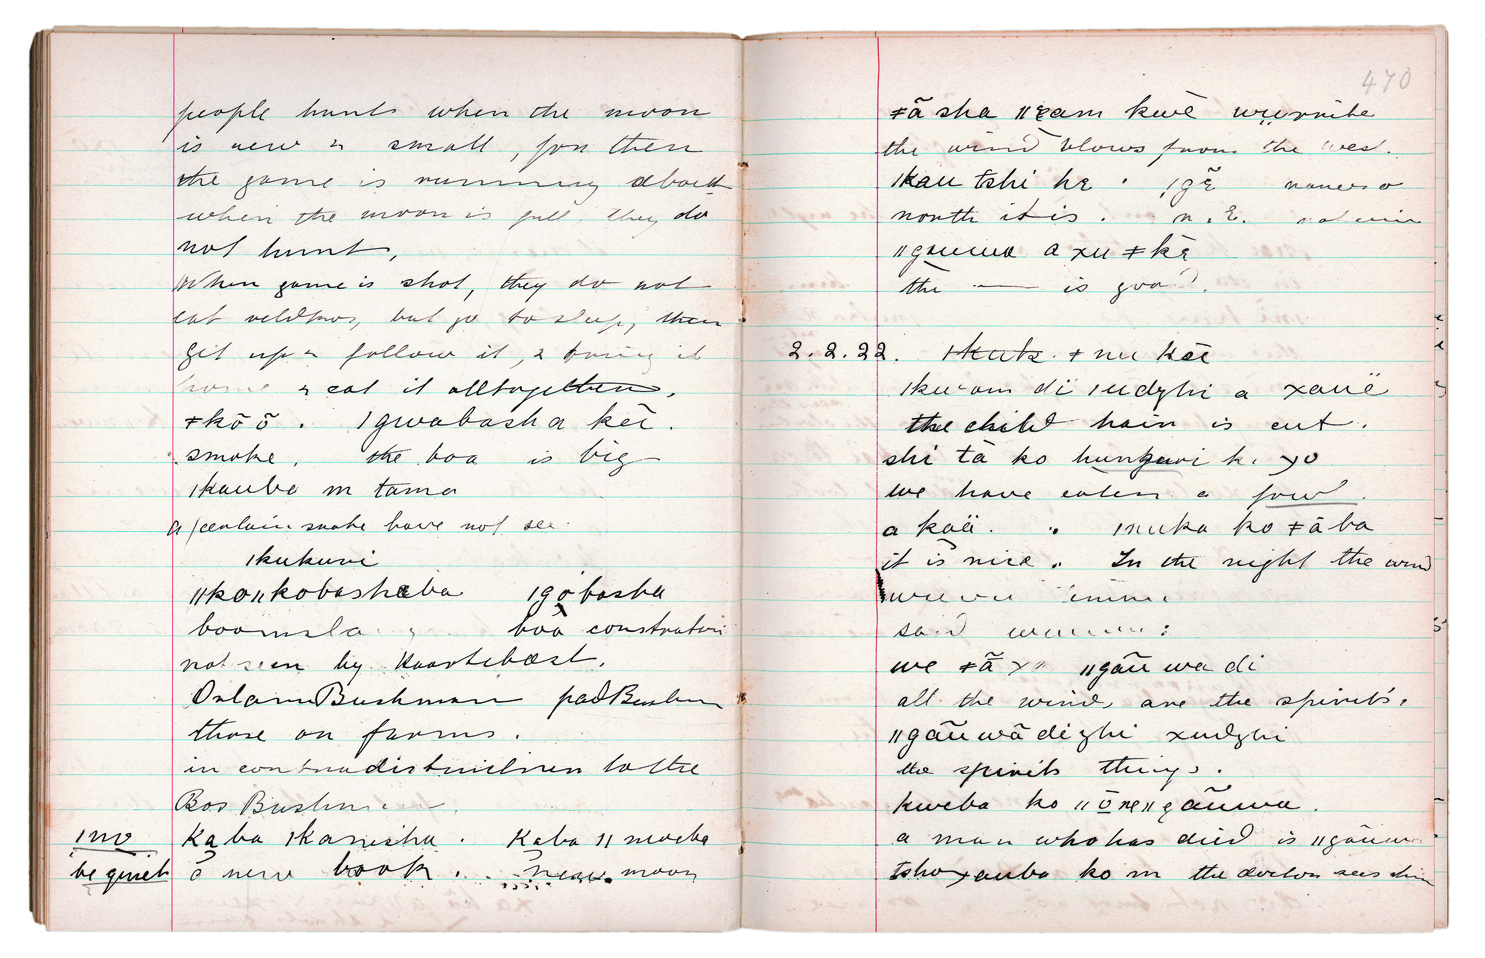 people hunts when the moon
is new & small, for then
the game is running about
when the moon is full they do
not hunt,
When game is shot, they do not
eat veldkos, but go to sleep, then
get up & follow it, & bring it
home & eat it alltogether,
ǂkō õ . ǀgwabasha kēĩ .
smoke . the boa is big
ǀkauba m tama
a certain snake have not see
ǀkukuni
ǁkoǁkobasheba ǀgóbasha
boomsla boa constrator
not seen by Kaartebœst.
Oxlam Bushman pad Bushm
those on farms .
in contradistintnen to the
Bos Bushmen
ǀno Kaba ǀkanisha . Kaba ǁ noeba
be quiet a new book . . new moon
470
ǂã sha ǁgam kwè
the wind blows from the west.
ǀkau tshi hɛ . ǀgɛ̃
north it is . n.E.
ǁgauwa a xu ǂkɛ
the — is good.
2.2.22. ǂnu kēi
di ǀudzhi a xauë
the child hair is cut .
shi tà ko k. yo
we have eaten a fowl .
a kaä . ǀnuka ko ǂāba
it is nice . In the night the wind
said
we ǂã ǁgãũ wa di
all the winds are the spirits.
ǁgãũ wā dizhi xudzhi
the spirits things .
kweba ko ǁgãũwa .
a man who has died is ǁgãuwa
tsho xauba ko m the doctor sees him